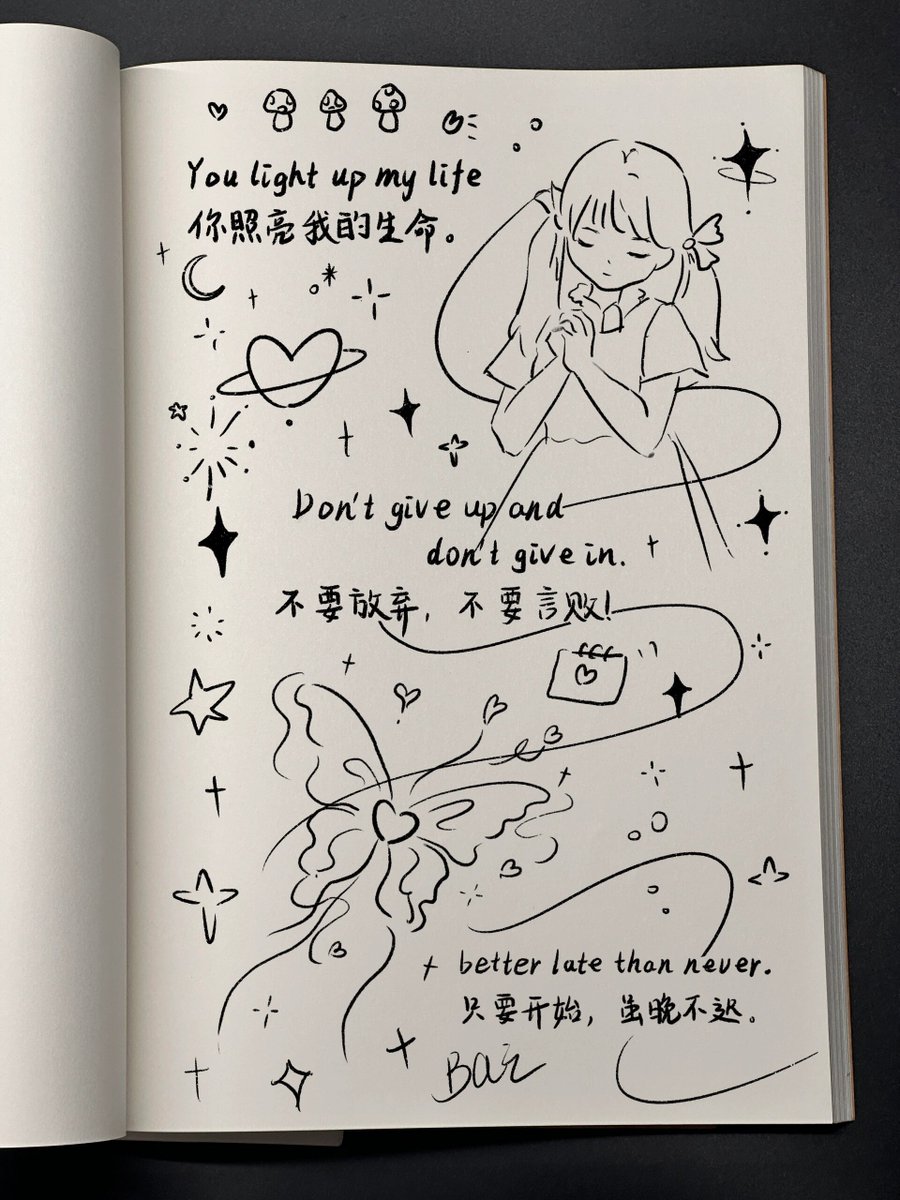 You light up my life
你照亮我的生命。
Don't give up and
don't give in.
不要放弃，不要言败!
better late than never.
只要开始，虽晚不迟。